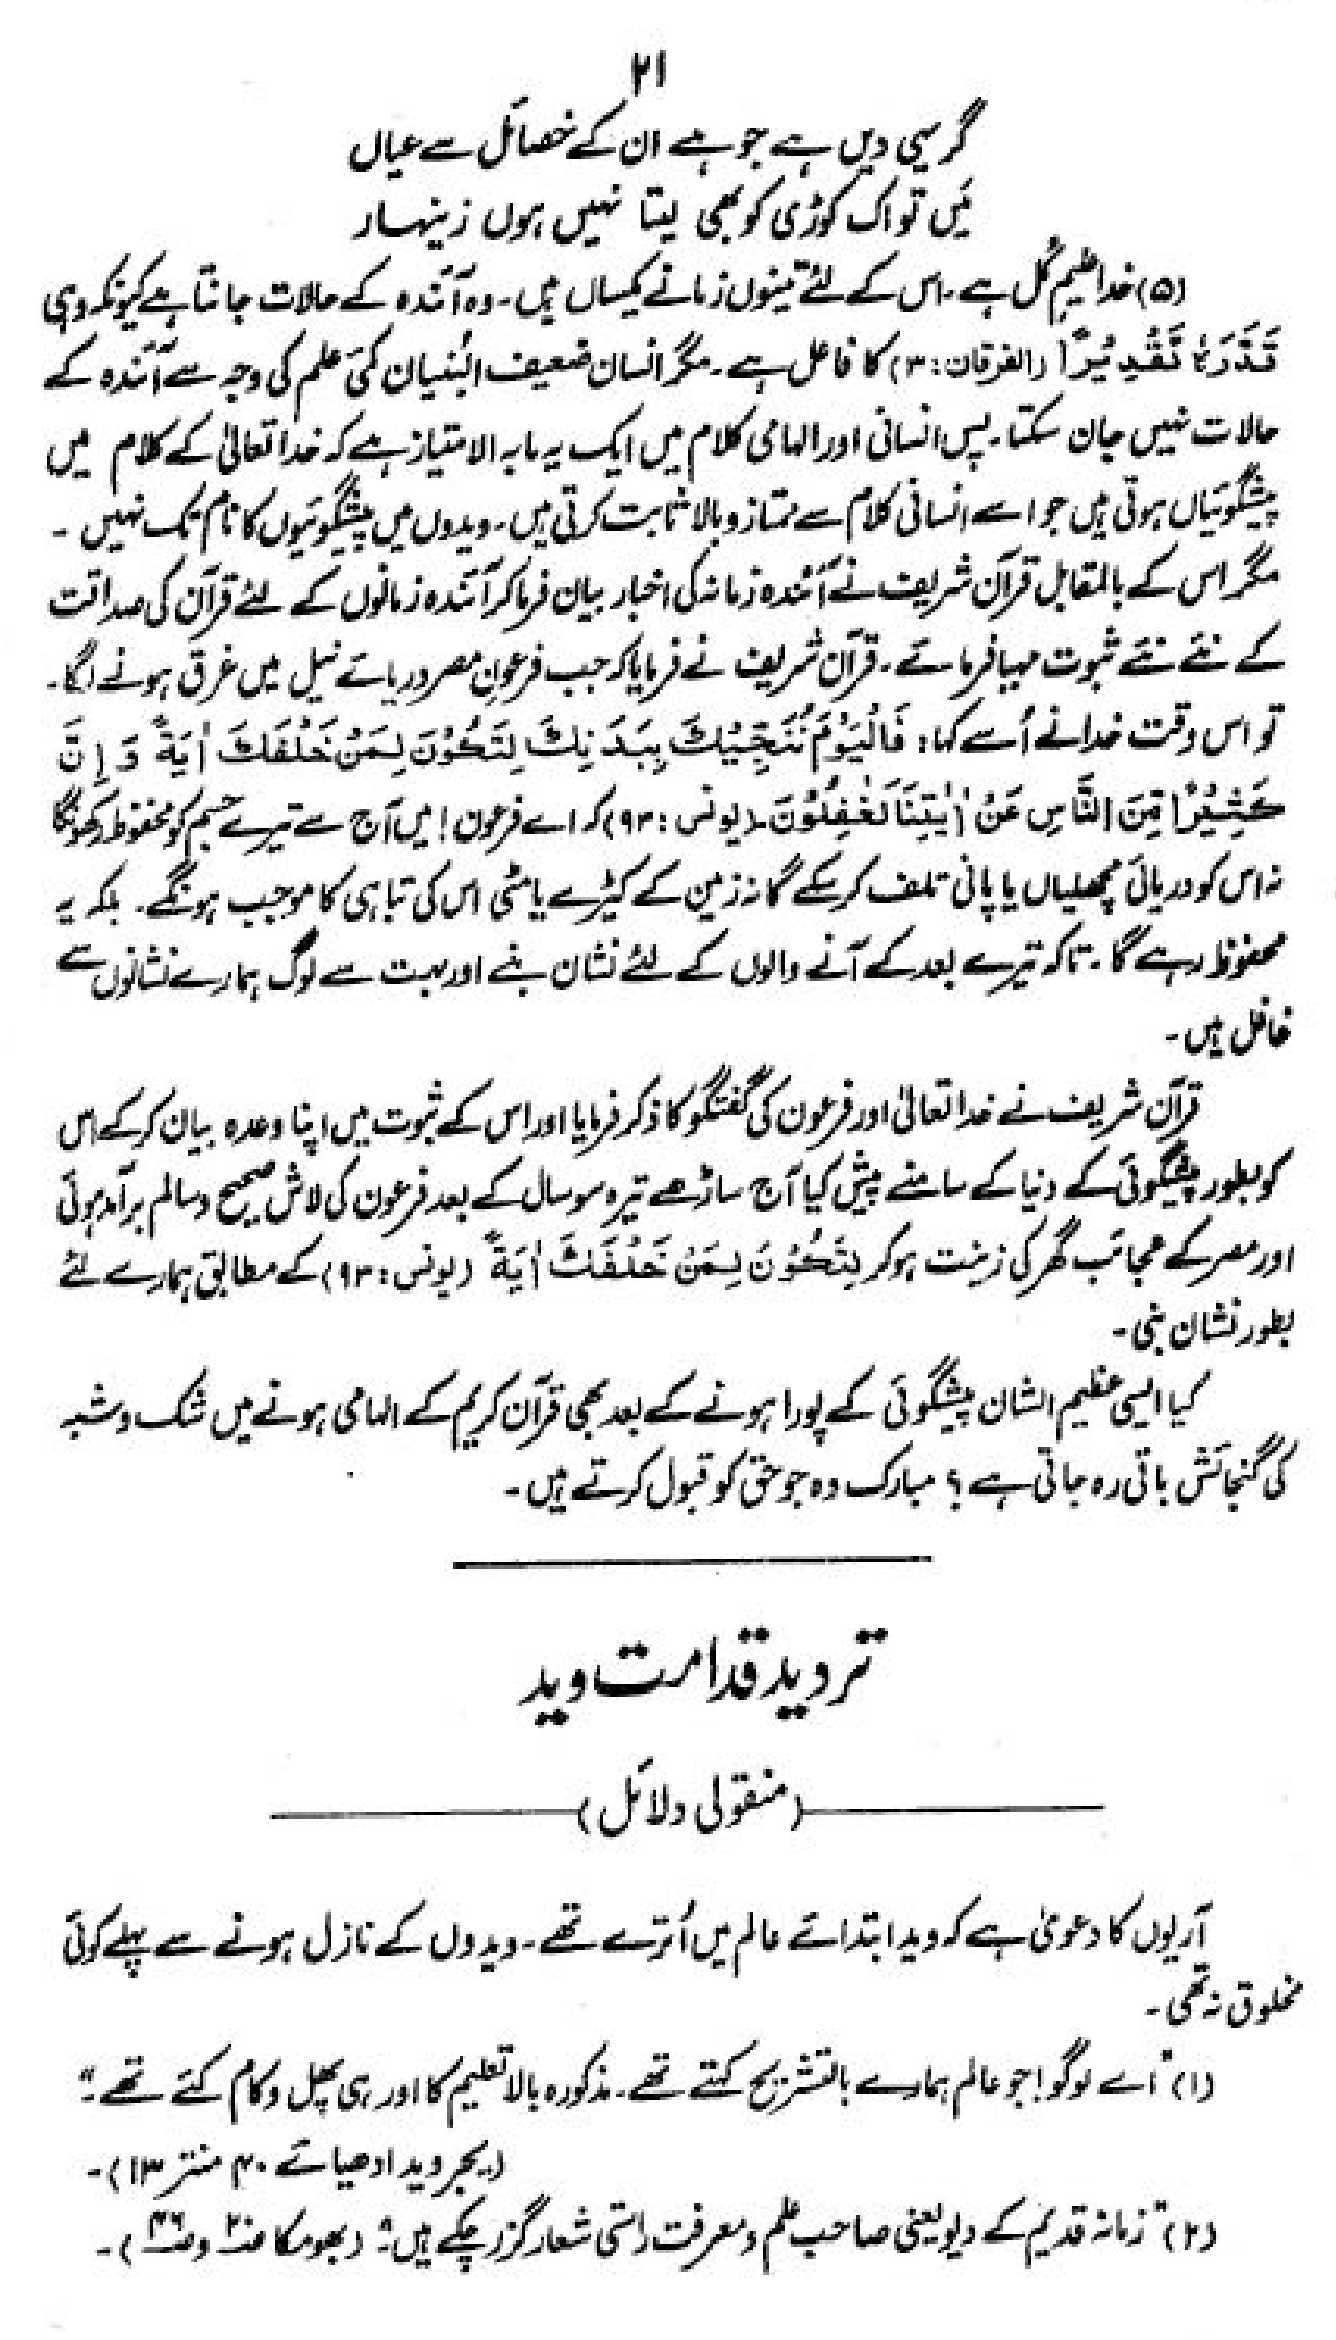 ۲۱
گر یہی دیں ہے جو ہے ان کے خصائل سے عیاں
مَیں تو اک کوڑی کو بھی لیتا نہیں ہوں زینہار
(۵) خدا علیمِ کُل ہے۔ اس کے لئے تینوں زمانے یکساں ہیں۔ وہ آئندہ کے حالات جانتا ہے کیونکہ وہی
قَدَّرَہٗ تَقْدِیْرًا (الفرقان: ۳) کا فاعل ہے۔ مگر انسان ضعیف البُنیان کمیٔ علم کی وجہ سے آئندہ کے
حالات نہیں جان سکتا۔ پس انسانی اور الہامی کلام میں ایک یہ مابہ الامتیاز ہے کہ خدا تعالیٰ کے کلام میں
پیشگوئیاں ہوتی ہیں جو اسے انسانی کلام سے ممتاز و بالا ثابت کرتی ہیں۔ ویدوں میں پیشگوئیوں کا نام تک نہیں۔
مگر اس کے بالمقابل قرآن شریف نے آئندہ زمانہ کی اخبار بیان فرما کر آئندہ زمانوں کے لئے قرآن کی صداقت
کے نئے نئے ثبوت مہیا فرمائے۔ قرآن شریف نے فرمایا کہ جب فرعونِ مصر دریائے نیل میں غرق ہونے لگا۔
تو اس وقت خدا نے اُسے کہا: فَالْیَوْمَ نُنَجِّیْکَ بِبَدَنِکَ لِتَکُوْنَ لِمَنْ خَلْفَکَ اٰیَةً وَ اِنَّ
کَثِیْرًا مِّنَ النَّاسِ عَنْ اٰیٰتِنَا لَغٰفِلُوْنَ۔ (یونس: ۹۳) کہ اے فرعون! میں آج سے تیرے جسم کو محفوظ رکھونگا
نہ اس کو دریائی مچھلیاں یا پانی تلف کر سکے گا نہ زمین کے کیڑے یا مٹی اس کی تباہی کا موجب ہونگے۔ بلکہ یہ
محفوظ رہے گا۔ تاکہ تیرے بعد کے آنے والوں کے لئے نشان بنے اور بہت سے لوگ ہمارے نشانوں سے
غافل ہیں۔
قرآن شریف نے خدا تعالیٰ اور فرعون کی گفتگو کا ذکر فرمایا اور اس کے ثبوت میں اپنا وعدہ بیان کر کے اس
کو بطور پیشگوئی کے دنیا کے سامنے پیش کیا آج ساڑھے تیرہ سو سال کے بعد فرعون کی لاش صحیح و سالم برآمد ہوئی
اور مصر کے عجائب گھر کی زینت ہو کر لِتَکُوْنَ لِمَنْ خَلْفَکَ اٰیَةً (یونس: ۹۳) کے مطابق ہمارے لئے
بطور نشان بنی۔
کیا ایسی عظیم الشان پیشگوئی کے پورا ہونے کے بعد بھی قرآن کریم کے الہامی ہونے میں شک و شبہ
کی گنجائش باقی رہ جاتی ہے؟ مبارک وہ جو حق کو قبول کرتے ہیں۔
تردید قدامت وید
(منقولی دلائل)
آریوں کا دعویٰ ہے کہ وید ابتدائے عالم میں اُترے تھے۔ ویدوں کے نازل ہونے سے پہلے کوئی
مخلوق نہ تھی۔
(۱) "اے لوگو! جو عالم ہمارے بالتشریح کہتے تھے۔ مذکورہ بالا تعلیم کا اور ہی پھل و کام کہتے تھے۔"
(یجر وید ادھیائے ۴۰ منتر ۱۳)۔
(۲) "زمانہ قدیم کے دیو یعنی صاحب علم و معرفت راستی شعار گزر چکے ہیں۔" (بھومکا